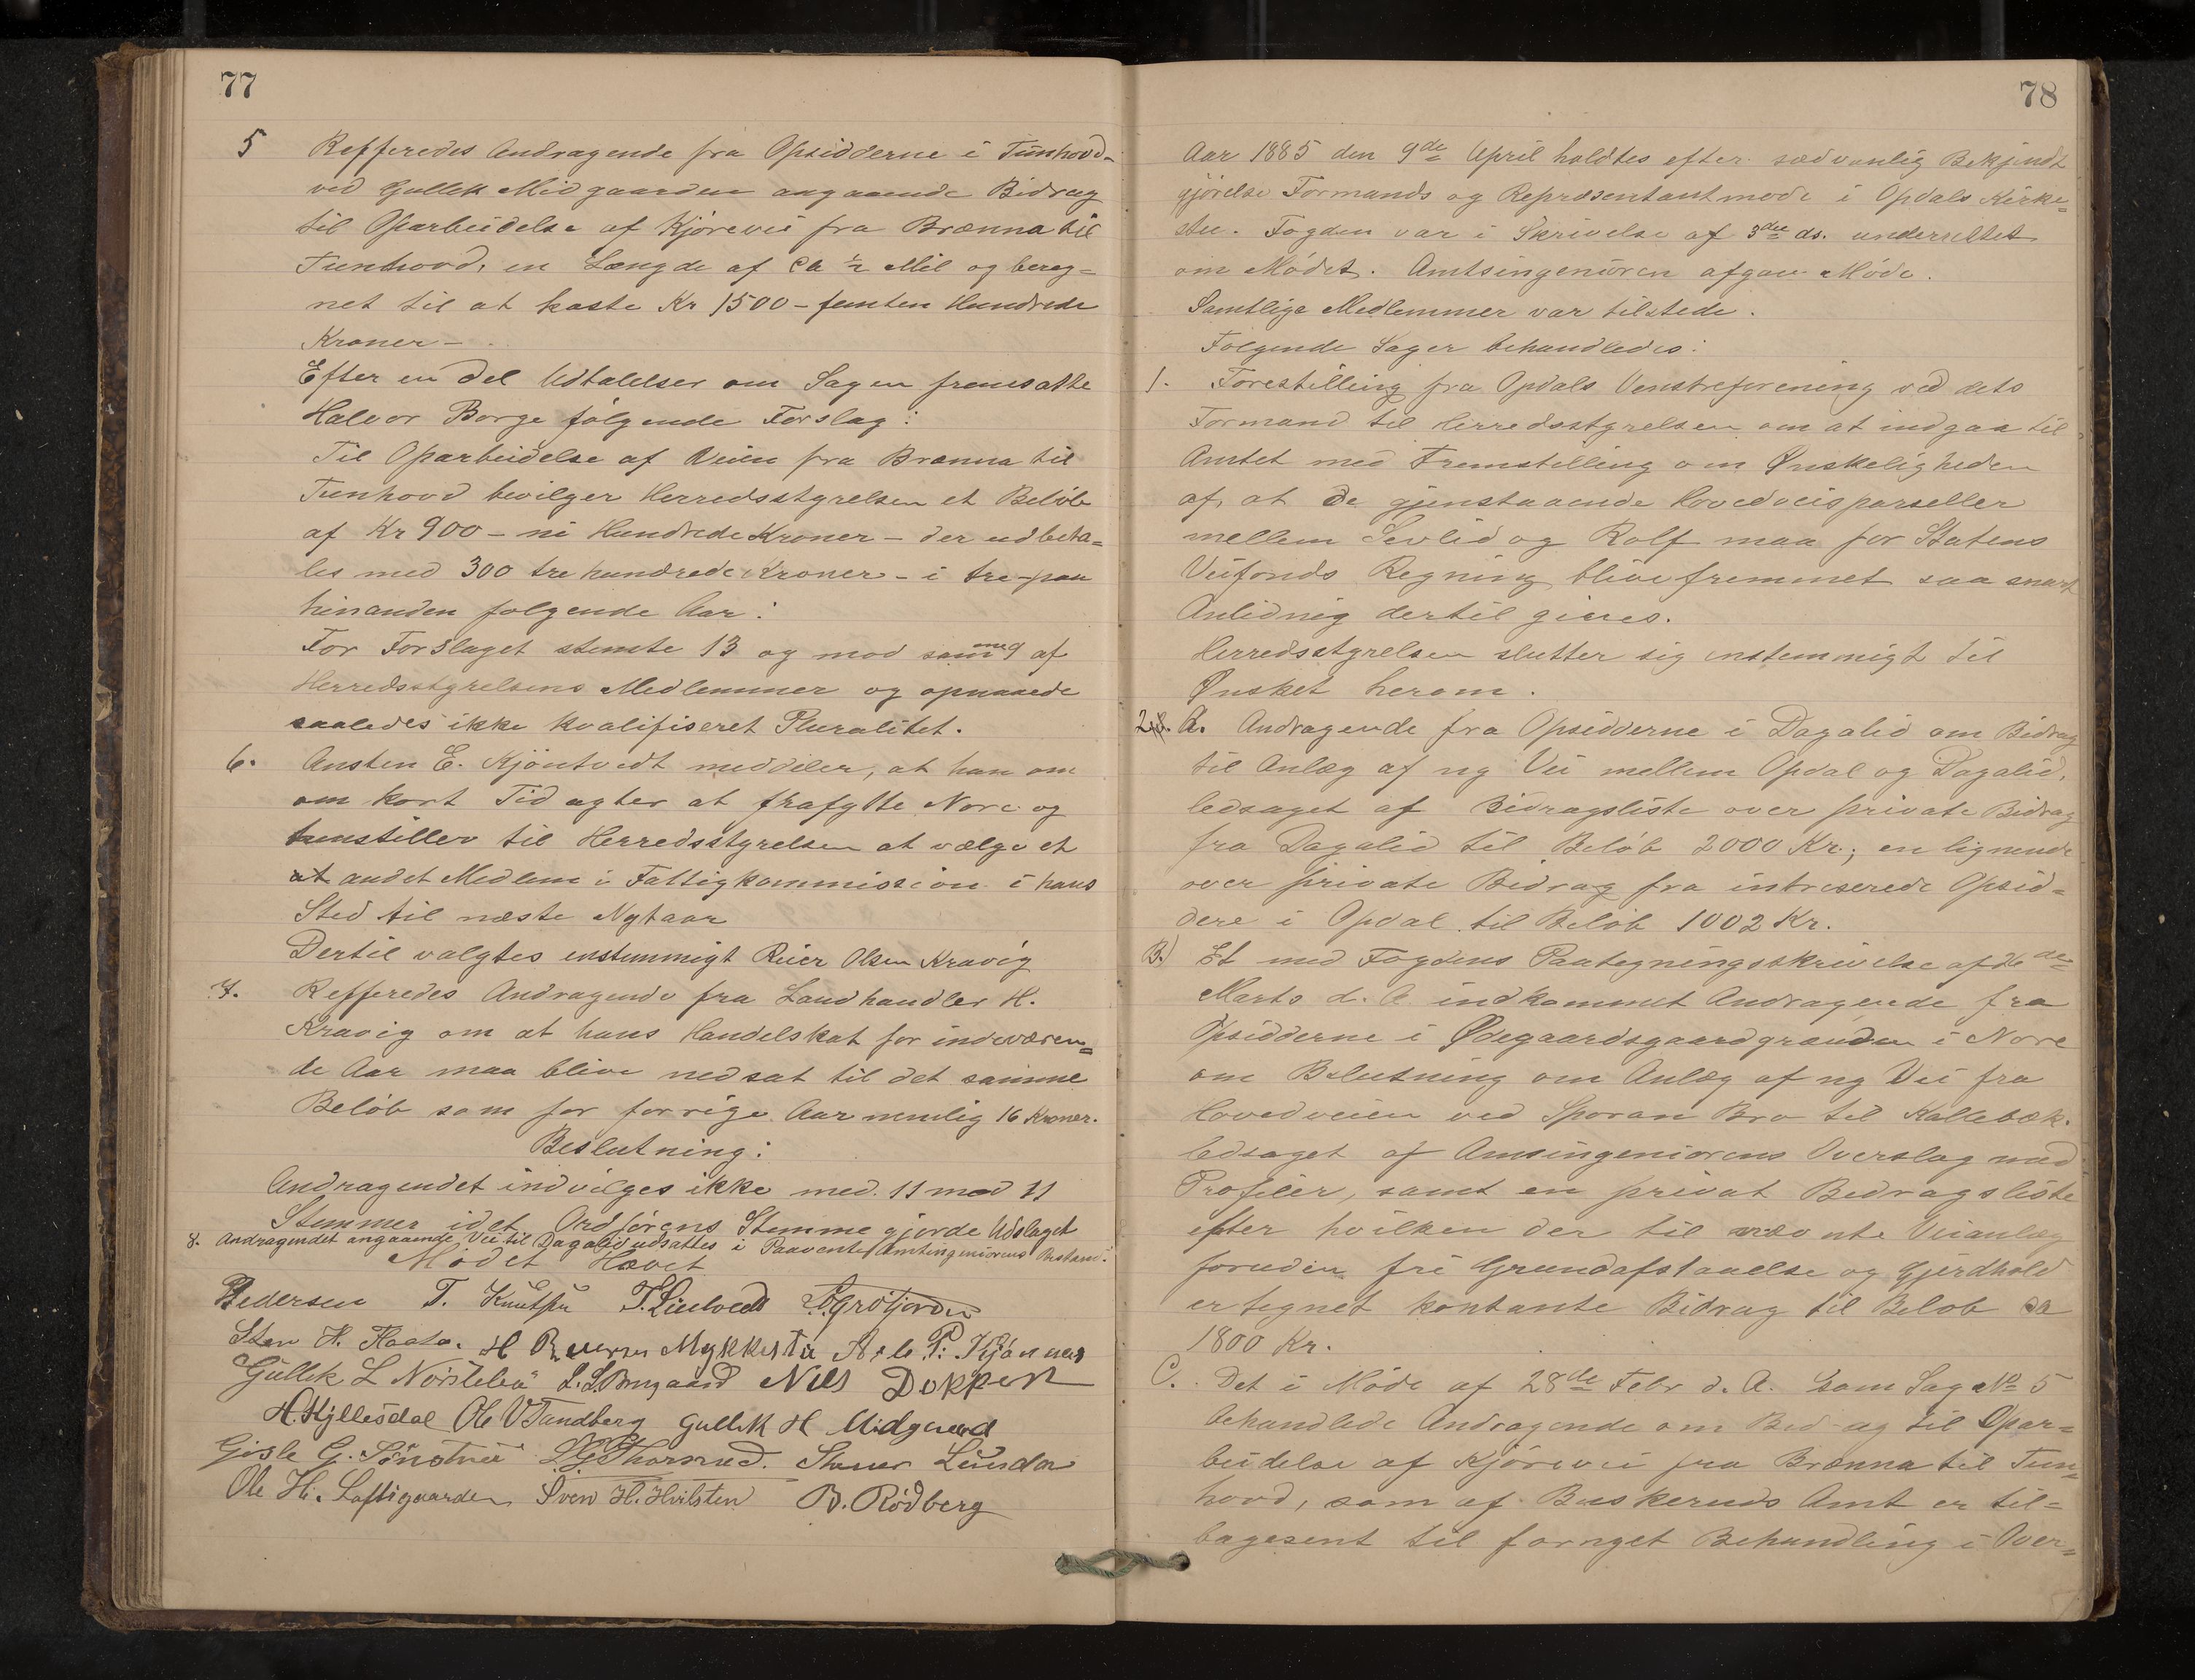 77
5 Refferedes Andragende fra Opsidderne i Tunhovd-
ved Gullik Midgaarden angaaende Bidrag
til Oparbeidelse af Kjørevei fra Brænna til
Tunhovd, en Længde af ca ½ Mil og bereg=
net til at koste Kr 1500 - femten Hundrede
Kroner -
Efter en Del Udtalelser om Sagen fremsatte
Halvor Borge følgende Forslag:
Til Oparbeidelse af Veien fra Brænna til
Tunhovd bevilger Herredsstyrelsen et Beløb
af Kr 900 - ni Hundrede Kroner - der udbeta=
les med 300 tre hundrede Kroner - i tre paa
hinanden følgende Aar:
For Forslaget stemte 13 og mod samme 9 af
Herredsstyrelsens Medlemmer og opnaaede
saaledes ikke kvalifiseret Pluralitet.
6. Ansten E. Kjøntvedt meddeler, at han om
om kort Tid agter at frafytte Nore og
henstiller til Herredsstyrelsen at vælge et
at andet Medlem i Fattigkommission i hans
Sted til næste Nytaar
Dertil valgtes enstemmigt Reier Olsen Kravig
7. Refferedes Andragende fra Landhandler H.
Kravig om at hans Handelskat for indeværen=
de Aar maa blive nedsat til det samme
Beløb som for forrige Aar nemlig 16 Kroner.
Beslutning:
Andragendet indvilges ikke med 11 mod 11
Stemmer idet Ordførens Stemme gjorde Udslaget
8. Andragendet angaaende Vei til Dagalid udsattes i Paavente Amtingeniørens Bistand.
Mødet Hævet
Pedersen T. Knutsen T. Lindvedt Grøtjorden
Sten H. Flaata. H Mykkestu Asle P: Kjønnaas
Gullik L Nørstebø L. L. Brugaard Nils Dokken
H. Kjillesdal Ole V Tandberg Gullik H Midgaard
Gisle G. Sønstrud Thorsrud. Stener Lunda
Ole H. Loftsgaarden Sven H. Hvilsten B. Rødberg
78
Aar 1885 den 9de April holdtes efter sædvanlig Bekjendt
gjørelse Formands og Repræsentantmøde i Opdals Kirke=
stu. Fogden var i Skrivelse af 3die ds. underrettet
om Mødet. Amtsingeniøren afgav Møde.
Samtlige Medlemmer var tilstede.
Følgende Sager behandledes:
1. Forestilling fra Opdals Venstreforening ved dets
Formand til Herredsstyrelsen om at indgaa til
Amtet med Fremstilling om Ønskeligheden
af, at de gjenstaaende Hovedveisparseller
mellem Sevlid og Rolf maa for Statens
Veifonds Regning blive fremmet saa snart
Anlidnig dertil gives.
Herredsstyrelsen slutter sig enstemmigt til
Ønsket herom.
2. A. Andragende fra Opsidderne i Dagalid om Bidrag
til Anlæg af ny Vei mellem Opdal og Dagalid,
ledsaget af Bidragsliste over private Bidrag
fra Dagalid til Beløb 2000 Kr.; en lignende
over private Bidrag fra intreserede Opsid=
dere i Opdal til Beløb 1002 Kr.
B.) Et med Fogdens Paategningsskrivelse af
Marts d. A. indkommet Andragende fra
Opsidderne i Ødegaardsgaardgrænden i Nore
om Beslutning om Anlæg af ny Vei fra
Hovedveien ved Sporan Bro til Kallebæk.
ledsaget af Amsingeniørens Overslag med
Profiler, samt en privat Bedragsliste
efter hvilken der til nævnte Veianlæg
foruden fri Grundafstaaelse og Gjerdhold
er tegnet kontante Bidrag til Beløb ca
1800 Kr.
C. Det i Møde af 28de Febr d. A. som Sag No 5
behandlede Andragende om Bedrag til Opar=
beidelse af Kjørevei fra Brænna til Tun=
hovd, som af Buskeruds Amt er til=
bagesent til fornyet Behandling i Over=